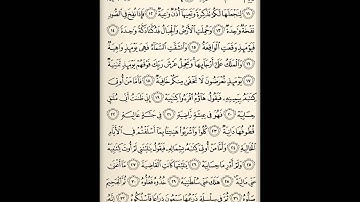 ١١ لِنَجْعَلَهَا لَكُمْ تَذْكِرَةً وَتَعِيَهَا أُذُنٌ وَٰعِيَةٌ ١٢ فَإِذَا نُفِخَ فِي الصُّورِ
نَفْخَةٌ وَٰحِدَةٌ ١٣ وَحُمِلَتِ الْأَرْضُ وَالْجِبَالُ فَدُكَّتَا دَكَّةً وَٰحِدَةً ١٤
فَيَوْمَئِذٍ وَقَعَتِ الْوَاقِعَةُ ١٥ وَانشَقَّتِ السَّمَاءُ فَهِيَ يَوْمَئِذٍ وَاهِيَةٌ
١٦ وَالْمَلَكُ عَلَىٰ أَرْجَائِهَا وَيَحْمِلُ عَرْشَ رَبِّكَ فَوْقَهُمْ يَوْمَئِذٍ ثَمَٰنِيَةٌ
١٧ يَوْمَئِذٍ تُعْرَضُونَ لَا تَخْفَىٰ مِنكُمْ خَافِيَةٌ ١٨ فَأَمَّا مَنْ أُوتِيَ
كِتَٰبَهُ بِيَمِينِهِ فَيَقُولُ هَاؤُمُ اقْرَءُوا كِتَٰبِيَهْ ١٩ إِنِّي ظَنَنتُ أَنِّي مُلَٰقٍ
حِسَابِيَهْ ٢٠ فَهُوَ فِي عِيشَةٍ رَّاضِيَةٍ ٢١ فِي جَنَّةٍ عَالِيَةٍ ٢٢
قُطُوفُهَا دَانِيَةٌ ٢٣ كُلُوا وَاشْرَبُوا هَنِيئًا بِمَا أَسْلَفْتُمْ فِي الْأَيَّامِ
الْخَالِيَةِ ٢٤ وَأَمَّا مَنْ أُوتِيَ كِتَٰبَهُ بِشِمَالِهِ فَيَقُولُ يَٰلَيْتَنِي لَمْ أُوتَ كِتَٰبِيَهْ
٢٥ وَلَمْ أَدْرِ مَا حِسَابِيَهْ ٢٦ يَٰلَيْتَهَا كَانَتِ الْقَاضِيَةَ ٢٧ مَا أَغْنَىٰ
عَنِّي مَالِيَهْ ٢٨ هَلَكَ عَنِّي سُلْطَٰنِيَهْ ٢٩ خُذُوهُ فَغُلُّوهُ ٣٠ ثُمَّ الْجَحِيمَ
صَلُّوهُ ٣١ ثُمَّ فِي سِلْسِلَةٍ ذَرْعُهَا سَبْعُونَ ذِرَاعًا فَاسْلُكُوهُ ٣٢